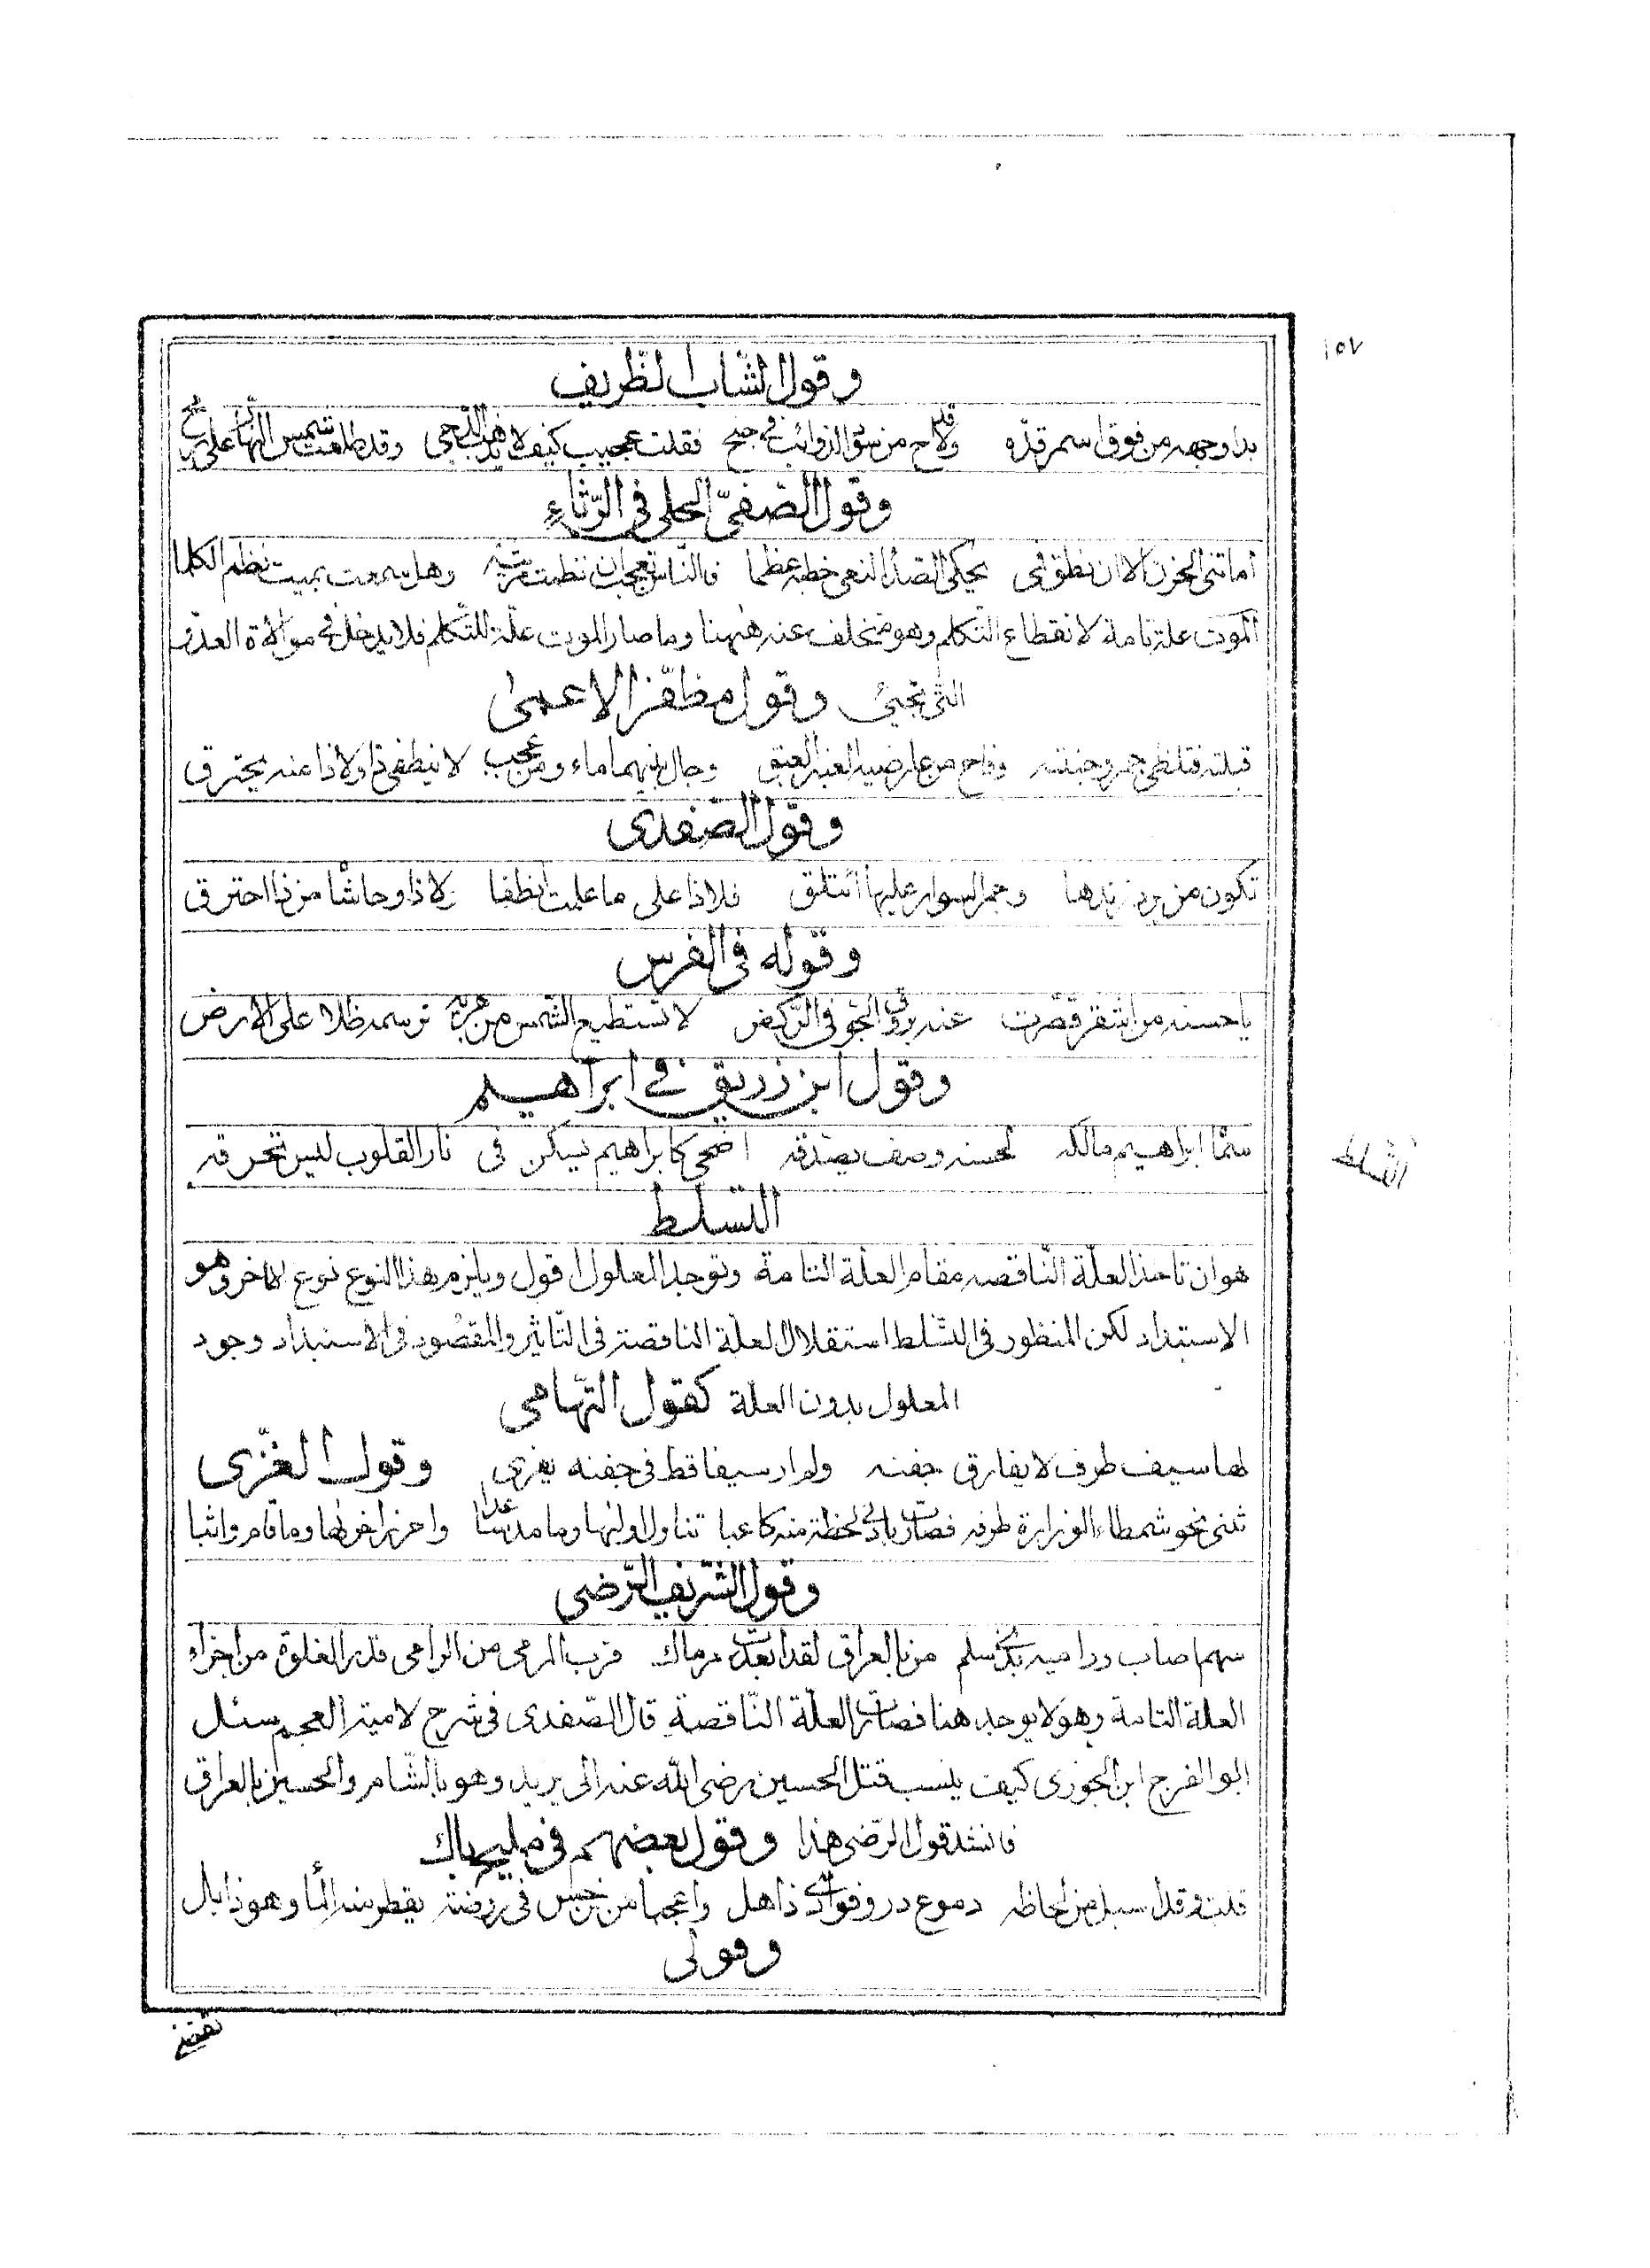 ١٥٧
وقول الشاب الظريف
بدا وجهه من فوق اسمر قدّه وقد لاح من سود الذوائب في جنح فقلت عجيب كيف لا يذهب الدجى وقد طلعت شمس النهار على رمح
وقول الصّفيّ الحلي في الرّثاء
اماتني الحزن الا ان نطق فمي يحكي الصدا لنعي خطبه عظما فالناس تعجب ان نظمت مرثية وهل سمعت بميت نظم الكلما
الموت علة تامة لانقطاع التكلم وهو متخلف عنه ههنا وما صار الموت علّة للتّكلم فلا يدخل في موالاة العدو
التي تجيئ وقول مظفّر الاعمى
قبلته فتلظى جمر وجنته وفاح من عارضيه العنبر العبق وجال بينهما ماء ومن عجب لا ينطفي ذا ولا ذا عنه يحترق
وقول الصّفدى
تكون من زندها وجمر السوار عليها ائتلق فلا ذا على ما علمت انطفا ولا ذا وحاشا من ذا احترق
وقوله في الفرس
يا حسنه من اشقر قصّرت عنه بروق الجوّ في الرّكض لا تستطيع الشّمس من جريه ترسمه ظلا على الارض
وقول ابن زريق في ابراهيم
سمّا ابراهيم مالكه لحسنه وصف يصدقه اضحى كابراهيم يسكن في نار القلوب ليس تحرقه
التّسلط
التسلط
هو ان تاخذ العلّة النّاقصه مقام العلّة التامة وتوجد المعلول اقول ويلزم هذا النوع نوع اخر وهو
الاستبداد لكن المنظور في التسّلط استقلال العلّة الناقصة في التاثير والمقصود في الاستبداد وجود
المعلول بدون العلة كقول التّهامى
لها سيف طرف لا يفارق جفنه ولم ار سيفا قط في جفنه يفرى وقول الغزّى
ثنى نحو شمطاء الوزارة طرفه فصارت بادنى لحظة منه كاعبا تناول اولها وما مد ساعدا واحرز اخراها وما قام واثبا
وقول الشّريف الرّضى
سهم اصاب وراميه بذى سلم من بالعراق لقد ابعدت مرماك قرب المرمى من الرامى قدر الغلوة من اجزاء
العلة التامة وهو لا يوجد هنا فصارت العلّة النّاقصة قال الصّفدى في شرح لامية العجم سئل
ابو الفرج ابن الجوزى كيف ينسب قتل الحسين رضى الله عنه الى يزيد وهو بالشام والحسين بالعراق
فانشد قول الرّضى هذا وقول بعضهم في مليح باك
قلت وقد سبل من لحاظه دموع در وفوادى ذاهل واعجبا من نرجس في روضة يقطر منه الما وهو ذابل
وقولى